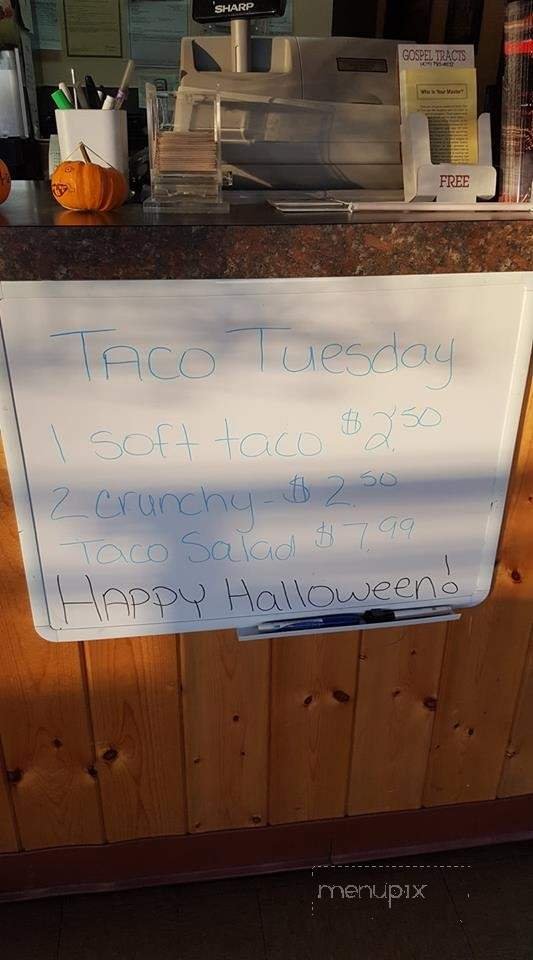 SHARP
GOSPEL TRACTS
Who is Your Master?
FREE
TACO Tuesday
1 soft taco $2.50
2 crunchy - $2.50
Taco Salad $7.99
HAPPY Halloween!
menupix